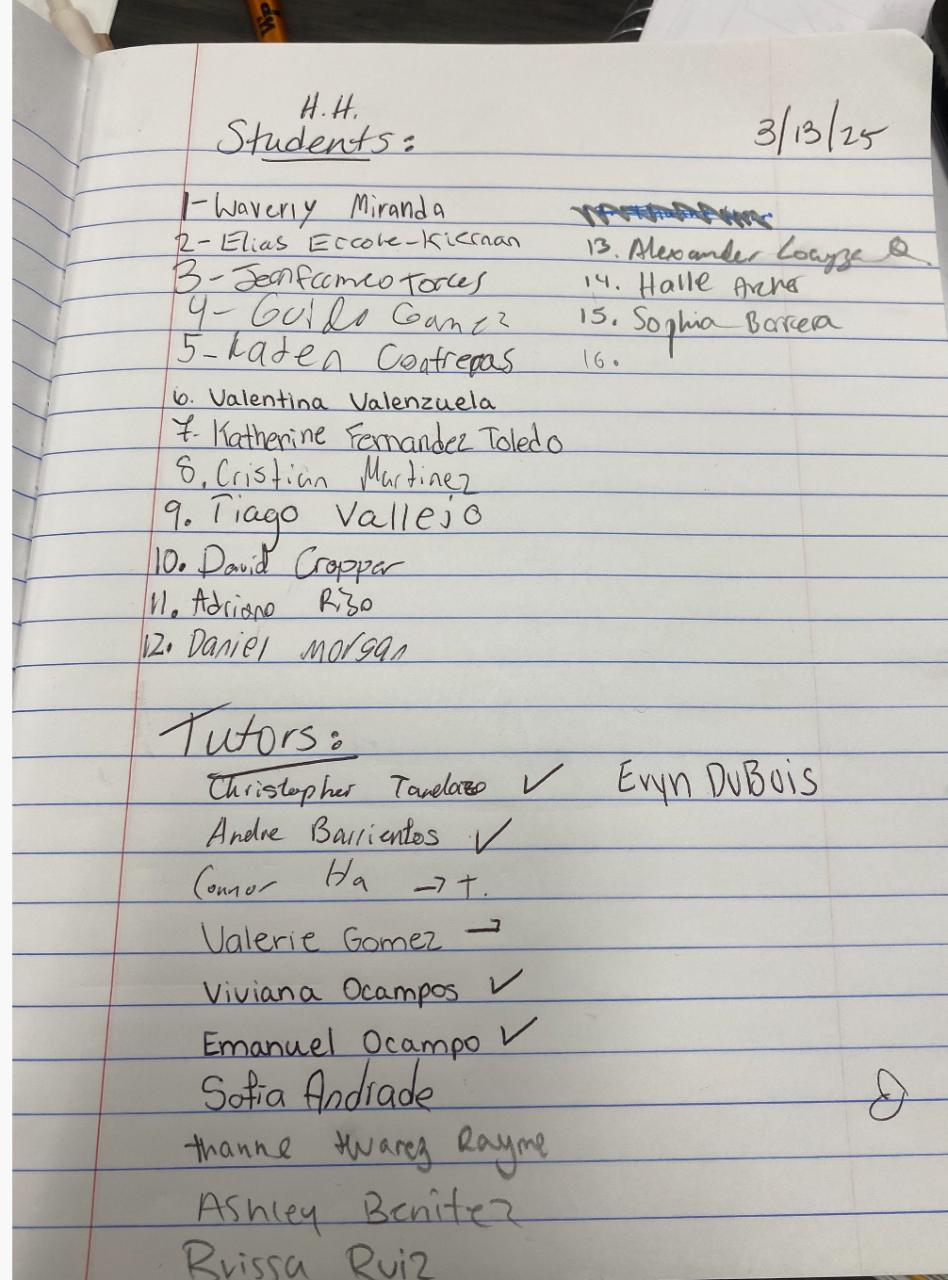 H.H.
Students:
3/13/25
1-Waverly Miranda
2-Elias Eccole-Kiernan
3-Torres
4-
5-Kaden Contreras
6. Valentina Valenzuela
7. Katherine Fernandez Toledo
8. Cristian Martinez
9. Tiago Vallejo
10. David Cropper
11. Adriano Rizo
12. Daniel Morgan
13. Alexander Loayza Q.
14. Halle
15. Sophia Barrera
16.
Tutors:
Christopher ✓
Evyn DuBois
Andre Barrientos ✓
Connor Ha → T.
Valerie Gomez →
Viviana Ocampos ✓
Emanuel Ocampo ✓
Sofia Andrade
Rayme
Ashley Benitez
Brissa Ruiz